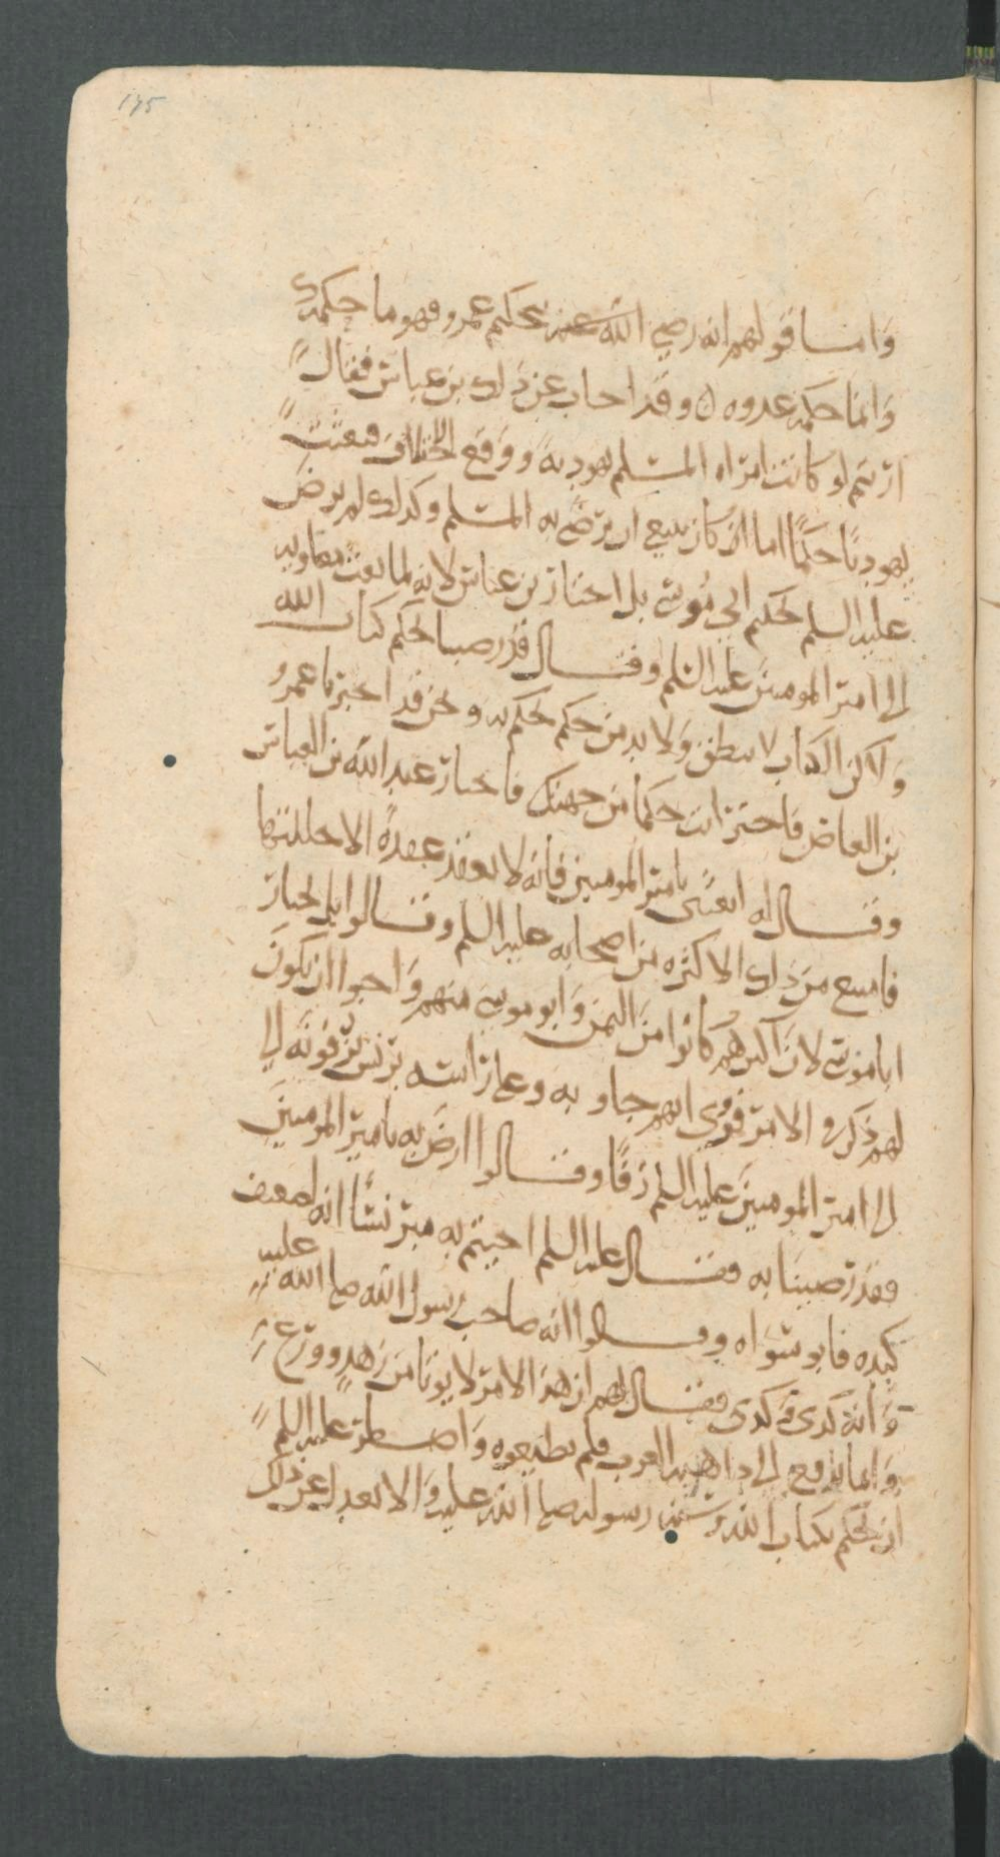 175
وانما قولهم انه رضي الله عنه بحكم عمرو فهو ما حكمه
وانما حكمه عدوه وقد اجاب عن ذلك بن عباس فقال
ارئيتم لو كانت امراه المسلم يهوديه ووقع الخلاف فبعثت
يهوديا حكما اما كان ينبغي ان يرضى به المسلم وكذلك لم يرض
عليه السلم بحكم ابي موسى بل اختار بن عباس لانه لما بعث معاويه
الى امير المومنين عليه السلم وقال قد رضينا بحكم كتاب الله
ولاكن الكتاب لا ينطق ولا بد من حكم يحكم به ونحن قد اخترنا عمرو
بن العاص فاختر انت حكما من جهتك فاختار عبد الله بن العباس
وقال له ابعثنى يامير المومنين فانه لا يعقد عقدة الا حللتها
فامتنع من ذلك الاكثره من اصحابه عليه السلم وقالوا بل نختار
ابا موسى لان اكثرهم كانوا من اليمن وابو موسى منهم واحبوا ان يكون
لهم ذكر في الامر فروي انهم جاوا به وعلى راسه برنس يزفونه الى
الى امير المومنين عليه السلم زفا وقالوا ارض به يامير المومنين
فقد رضينا به فقال عليه السلم اجيتم به مبرنسا انه لضعف
كيده فابو سواه وقالوا انه صاحب رسول الله صلى الله عليه
وانه كدى وكدى فقال لهم ان هذا الامر لا يوتا من زهد وورع
وانما يدفع الى داهية العرب فلم يطيعوه واصطر عليه السلم
ان يحكم بكتاب الله وسنه رسوله صلى الله عليه والا يعدل عن ذلك